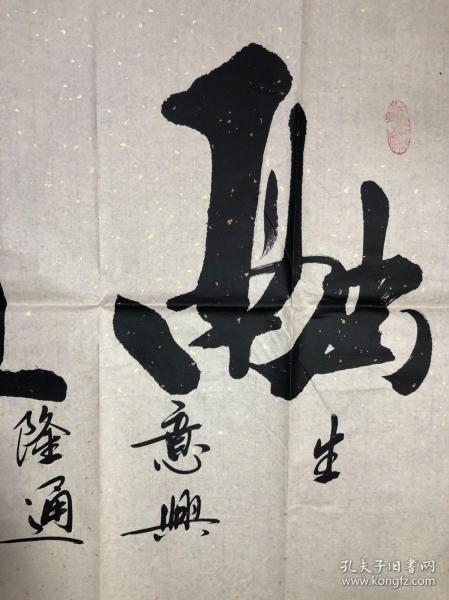 融
生
意興
隆通
孔夫子旧书网
www.kongfz.com